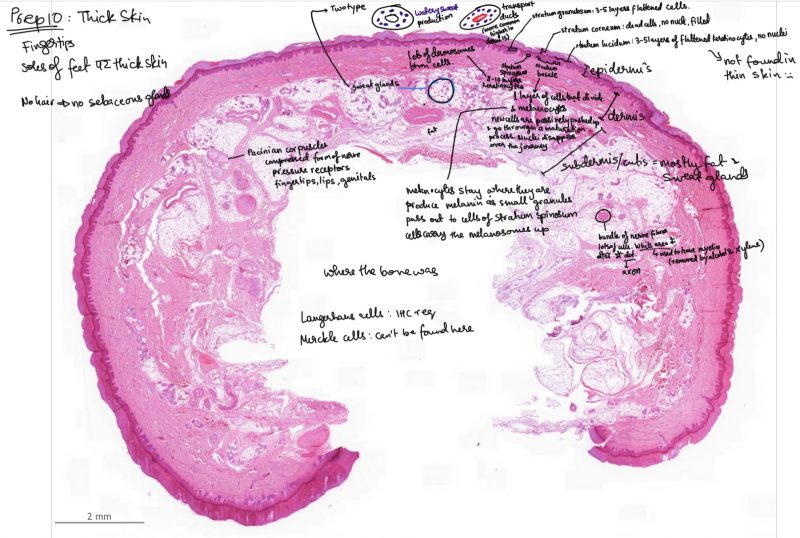 Prep 10: Thick Skin
Fingertips
Soles of feet thick skin
No hair → no sebaceous glands
Two type
watery sweat
production
transport
ducts
(more common
higher in
dermis)
stratum granulosum: 3-5 layers flattened cells.
stratum corneum: dead cells, no nuclei, filled
stratum lucidum: 3-5 layers of flattened keratinocytes, no nuclei
↳ not found in
thin skin
epidermis
dermis
subdermis/cutis = mostly fat &
sweat glands
lots of desmosomes
btwn cells
stratum
spinosum
8-10 layers
keratinocytes
stratum
basale
1 layer of cells that divide
& melanocytes
new cells are passively pushed up
& go through a maturation
process. Nuclei disappear
over the journey
sweat glands
fat
Pacinian corpuscles
compressed form of nerve
pressure receptors
fingertips, lips, genitals
melanocytes stay where they are
produce melanin as small granules
pass out to cells of stratum spinosum
cells carry the melanosomes up
bundle of nerve fibres
lots of cells. White area &
dot
axon
↳ used to have myelin
(removed by alcohol & xylene)
where the bone was
Langerhans cells: IHC req
Merckle cells: can't be found here
2 mm